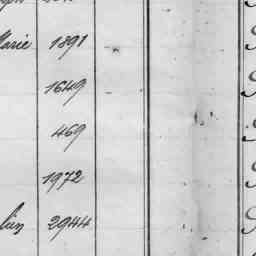 Marie 1891
1649
469
1972
2944